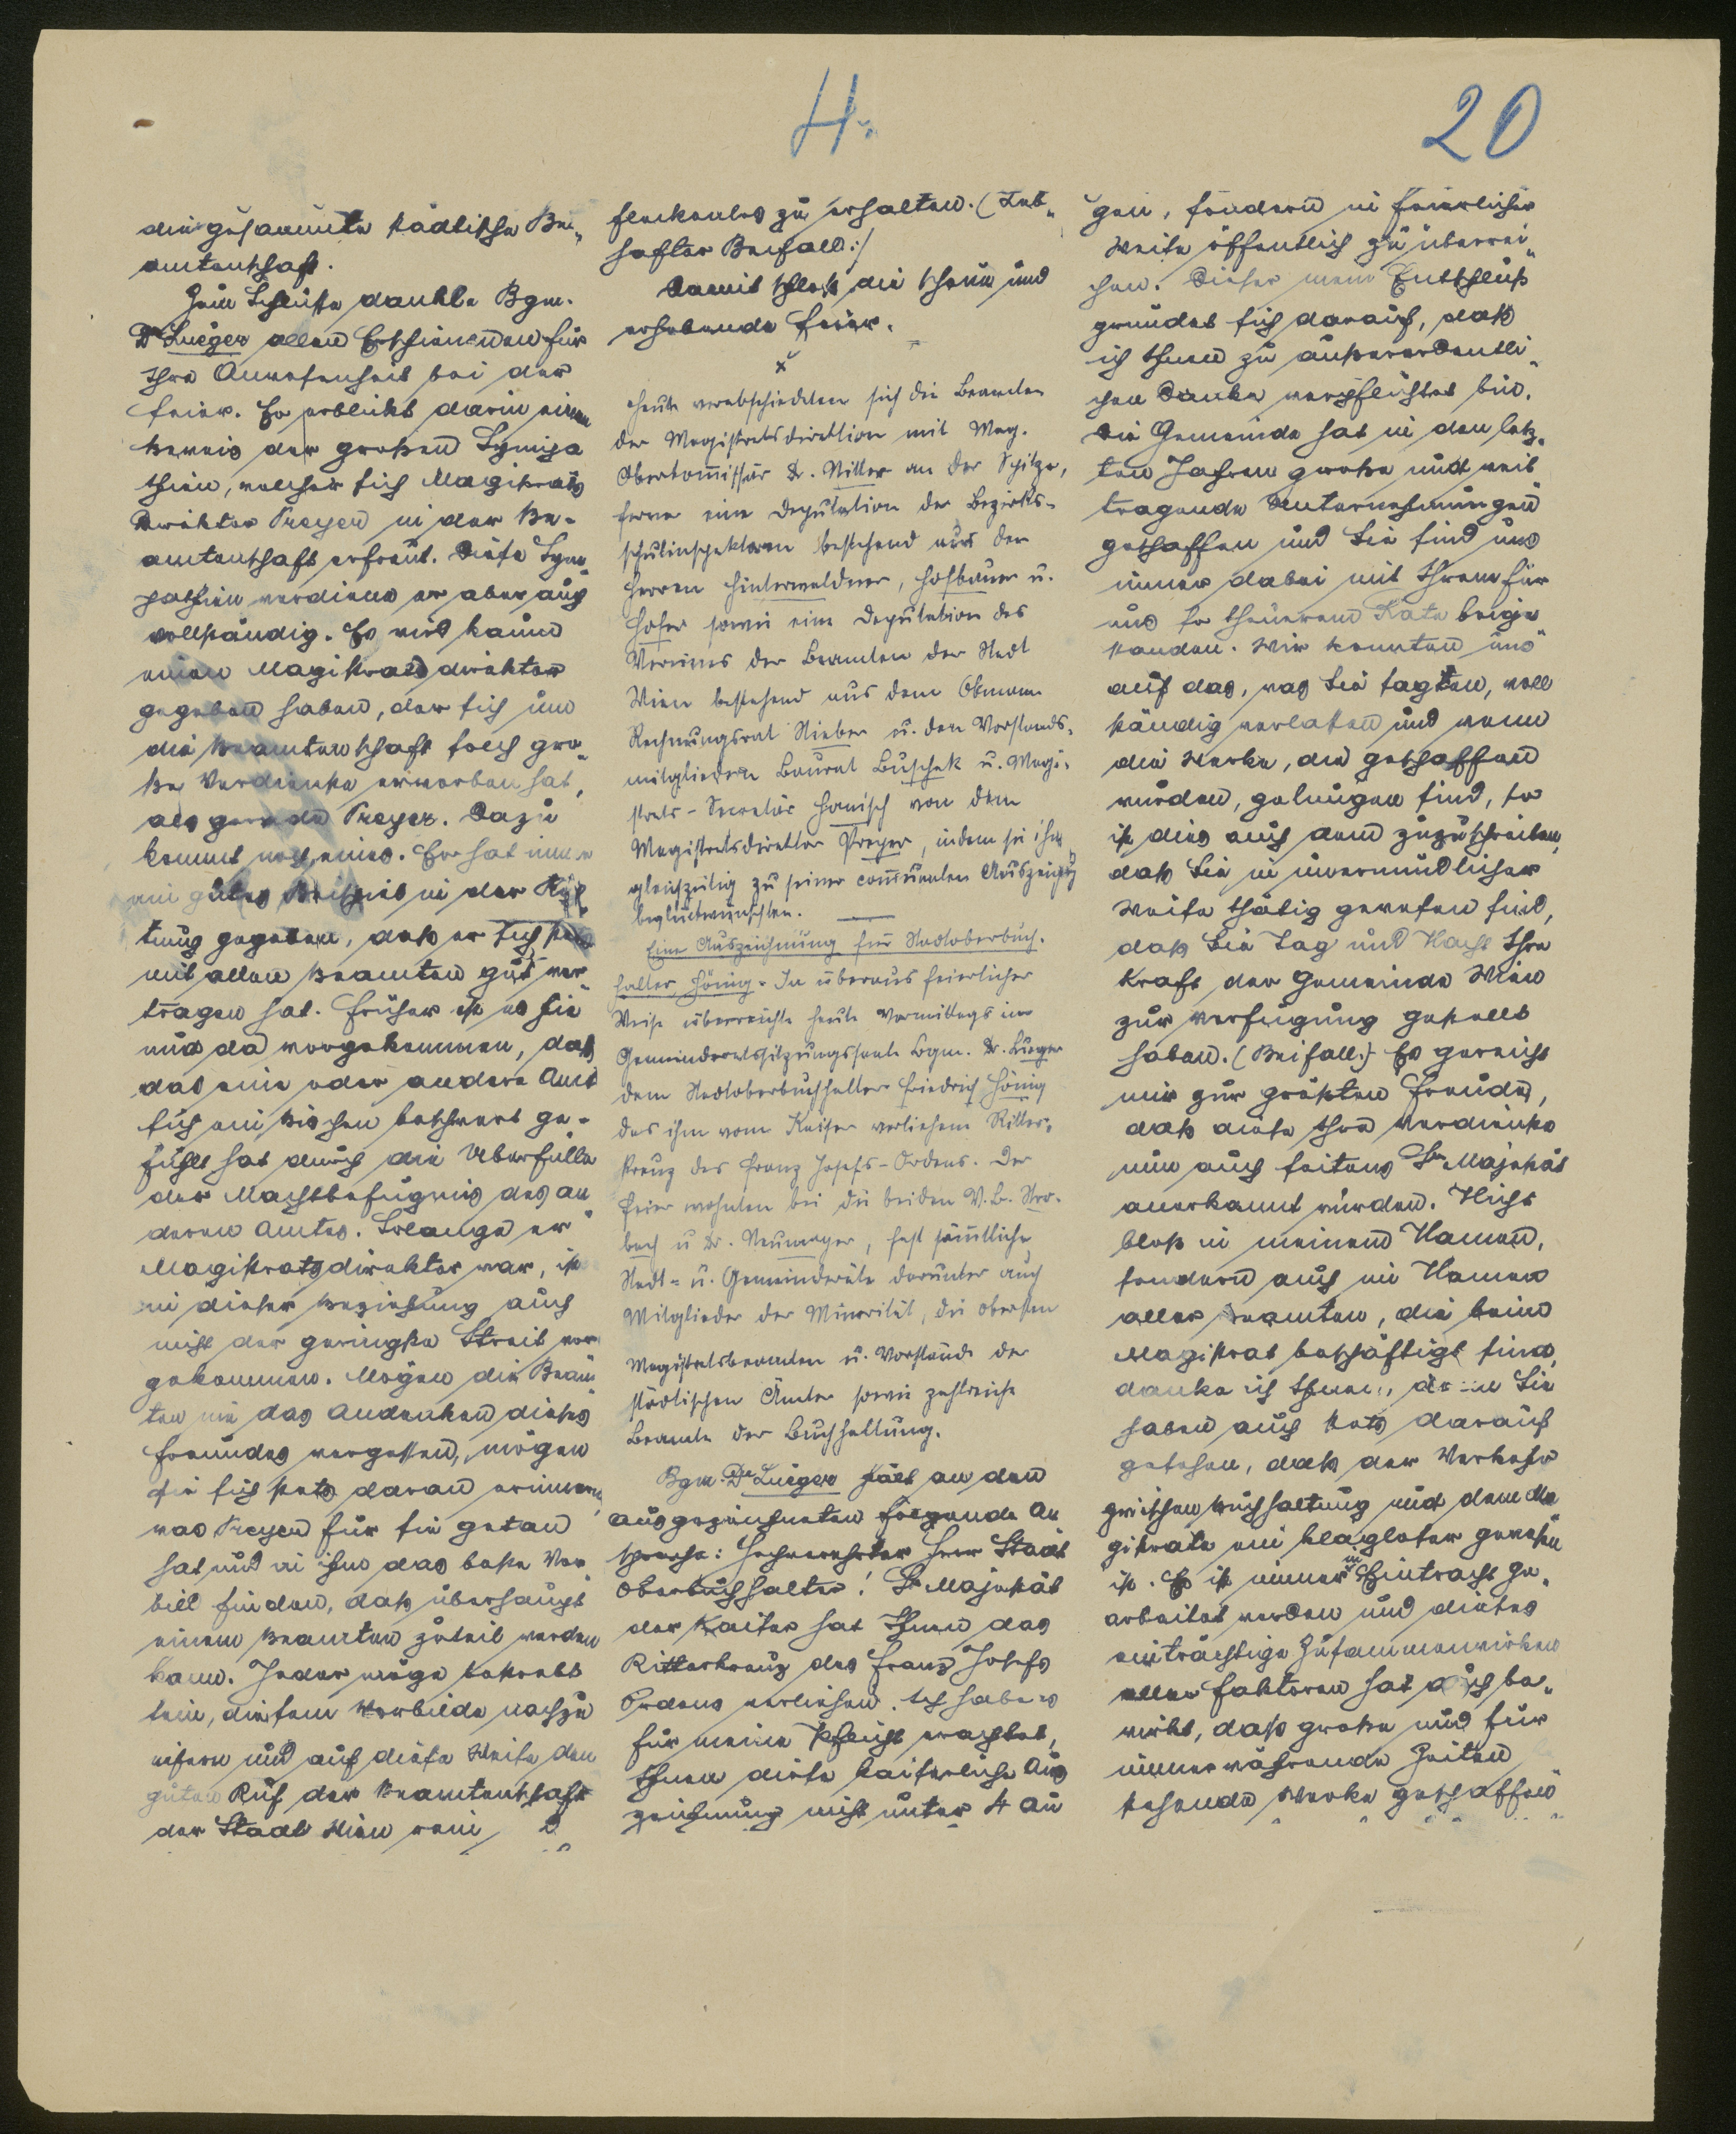 4.
20
die gesammte städtische Be„
amtenschaft.
Zum Schlusse dankte Bgm.
Dr Lueger allen Erschienenen für
Ihre Anwesenheit bei der
Feier. Er erblickt darin einen
Beweis der großen Sympa
thien, welcher sich Magistrats
Direktor Preyer in der Be-
amtenschaft erfreut. Diese Sym„
pathien verdiene er aber auch
vollständig. Es wird kaum
einen Magistratsdirektor
gegeben haben, der sich um
die Beamtenschaft solch gro„
ße Verdienste erworben hat,
als gerade Preyer. Dazu
kommt noch eines. Er hat immer
ein gutes Beispiel in der Rich„
tung gegeben, daß er sich stets
mit allen Beamten gut ver„
tragen hat. Früher ist es hie
und da vorgekommen, daß
das eine oder andere Amt
sich ein bischen beschwert ge-
fühlt hat durch die Überfülle
der Machtbefugnis des an„
deren Amtes. Solange er
Magistratsdirektor war, ist
in dieser Beziehung auch
nicht der geringste Streit vor„
gekommen. Mögen die Beam„
ten nie das Andenken dieses
Freundes vergessen, mögen
sie sich stets daran erinnern
was Preyer für sie getan
hat und in ihm das beste Vor„
bild finden, das überhaupt
einem Beamten zuteil werden
kann. Jeder möge bestrebt
sein, diesem Vorbilde nachzu
eifern und auf diese Weise den
guten Ruf der Beamtenschaft
der Stadt Wien rein
fleckenlos zu erhalten. (Leb„
hafter Beifall:/
Damit schloß die schöne und
erhebende Feier.
x
Heute verabschiedeten sich die Beamten
der Magistratsdirektion mit Mag.
Oberkom̄issär Dr. Nitter an der Spitze,
ferner eine Deputation der Bezirks-
schulinspektoren bestehend aus den
Herren Hinterwaldner, Hofbauer u.
Hofer sowie eine Deputation des
Vereines der Beamten der Stadt
Wien bestehend aus dem Obmann
Rechnungsrat Nieber u. den Vorstands-
mitgliedern Baurat Buschek u. Magi-
strats-Secretär Hanisch von dem
Magistratsdirektor Preyer, indem sie ihn
gleichzeitig zu seiner com̄unalen Auszeichng
beglückwünschten.
Eine Auszeichnung für Stadtoberbuch-
halter Hönig. In überaus feierlicher
Weise überreichte heute Vormittags im
Gemeinderatssitzungssaale Bgm. Dr. Lueger
dem Stadtoberbuchhalter Friedrich Hönig
das ihm vom Kaiser verliehene Ritter-
kreuz des Franz Josefs-Ordens. Der
Feier wohnten bei die beiden V.B. Stro-
bach u Dr. Neumayer, fast säm̄tliche
Stadt- u. Gemeinderäte darunter auch
Mitglieder der Minorität, die obersten
Magistratsbeamten u. Vorstände der
städtischen Ämter sowie zahlreiche
Beamte der Buchhaltung.
Bgm. Dr Lueger hielt an den
Ausgezeichneten folgende An
sprache: Hochverehrter Herr Stadt
Oberbuchhalter! Se Majestät
der Kaiser hat Ihnen das
Ritterkreuz des Franz Josefs
Ordens verliehen. Ich habe es
für meine Pflicht erachtet,
Ihnen diese kaiserliche Aus
zeichnung nicht unter 4 Au
gen, sondern in feierlicher
Weise öffentlich zu überrei„
chen. Dieser mein Entschluß
gründet sich darauf, daß
ich Ihnen zu außerordentli„
chen Danke verpflichtet bin.
Die Gemeinde hat in den letz„
ten Jahren große und weit
tragende Unternehmungen
geschaffen und Sie sind uns
immer dabei mit Ihrem für
uns so theuerem Rate beige„
standen. Wir konnten uns
auf das, was Sie sagten, voll
ständig verlassen und wenn
die Werke, die geschaffen
wurden, gelungen sind, so
ist dies auch dem zuzuschreiben,
daß Sie in unermüdlicher
Weise thätig gewesen sind,
daß Sie Tag und Nacht Ihre
Kraft der Gemeinde Wien
zur Verfügung gestellt
haben. (Beifall.) Es gereicht
mir zur größten Freude,
daß diese Ihre Verdienste
nun auch seitens Sr Majestät
anerkannt wurden. Nicht
bloß in meinem Namen,
sondern auch im Namen
aller Beamten, die beim
Magistrat beschäftigt sind,
danke ich Ihnen, denn Sie
haben auch stets darauf
gesehen, daß der Verkehr
zwischen Buchhaltung und dem Ma„
gistrate ein klagloser gewesen
ist. Es ist immer in Eintracht ge„
arbeitet worden und dieses
einträchtige Zusammenwirken
aller Faktoren hat auch be„
wirkt, daß große und für
immerwährende Zeiten
stehende Werke geschaffen